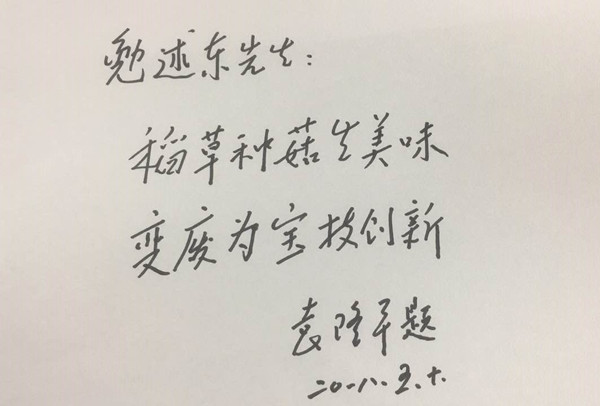 勉述东先生:
稻草种菇生美味
变废为宝技创新
袁隆平题
二〇一八.五.十.